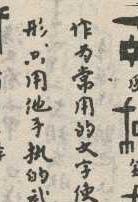 作为常用的文字使
形,只用他手执的武